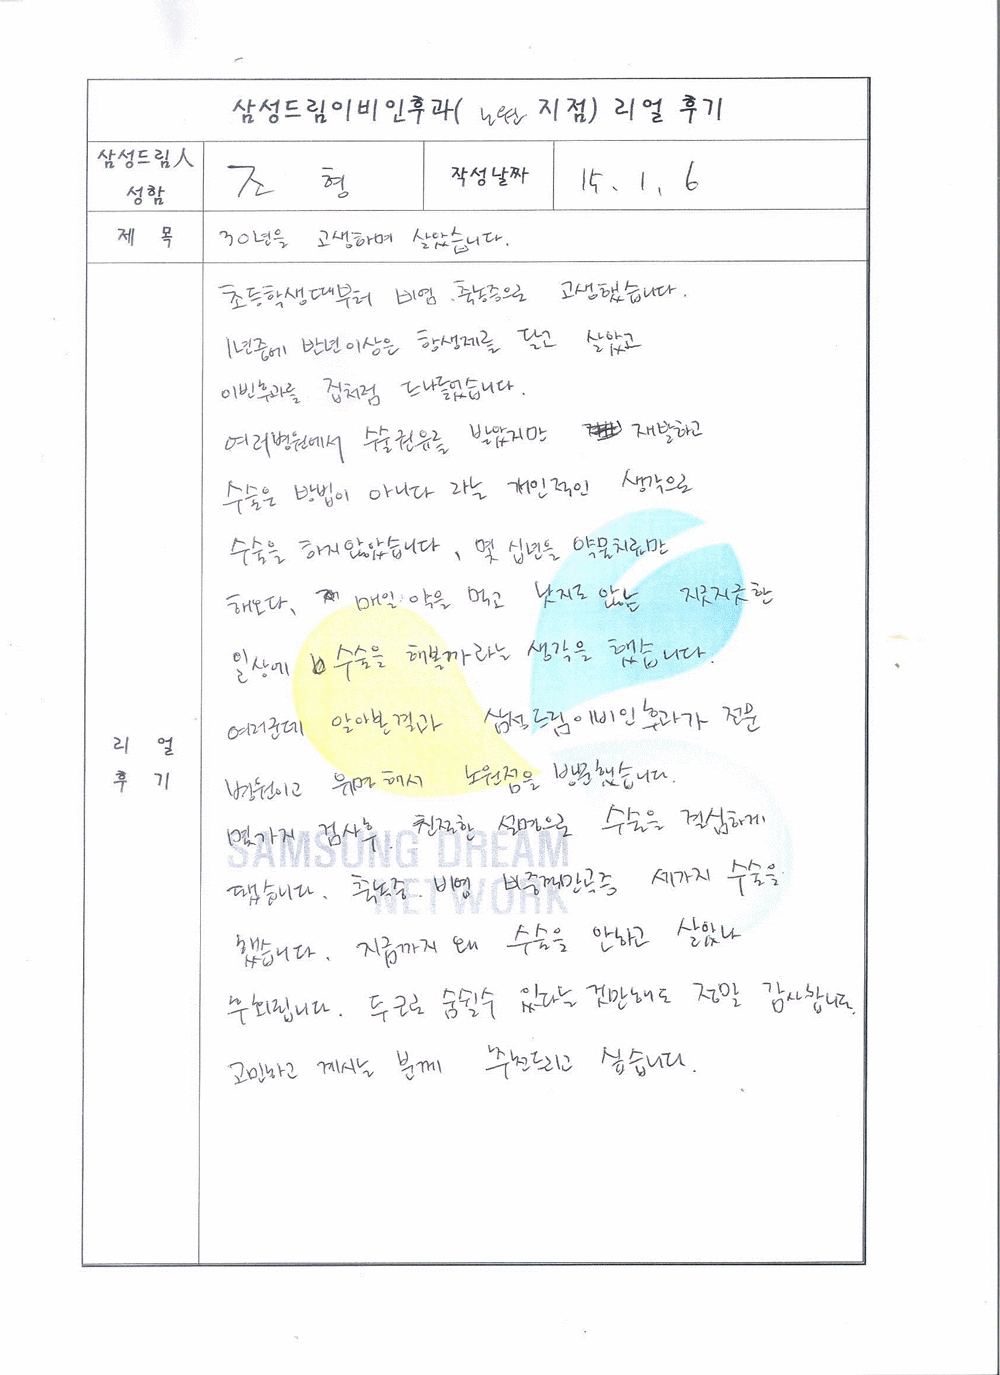 삼성드림이비인후과( 노원 지점) 리얼 후기
삼성드림人 성함
조 형
작성날짜
15. 1. 6
제 목
30년을 고생하며 살았습니다.
리 얼 후 기
초등학생때부터 비염.축농증으로 고생했습니다.
1년중에 반년이상은 항생제를 달고 살았고
이빈후과를 집처럼 드나들었습니다.
여러병원에서 수술권유를 받았지만 재발하고
수술은 방법이 아니다 라는 개인적인 생각으로
수술을 하지않았습니다, 몇 십년을 약물치료만
해오다, 매일 약을 먹고 낫지도 않는 지긋지긋한
일상에 수술을 해볼까라는 생각을 했습니다.
여러군데 알아본결과 삼성드림이비인후과가 전문
병원이고 유명해서 노원점을 방문했습니다.
몇가지 검사후. 친절한 설명으로 수술을 결심하게
됐습니다. 축농증. 비염 비중격만곡증 세가지 수술을
했습니다. 지금까지 왜 수술을 안하고 살았나
후회됩니다. 두 코로 숨쉴수 있다는 것만해도 정말 감사합니다.
고민하고 계시는 분께 추천드리고 싶습니다.
SAMSUNG DREAM
NETWORK